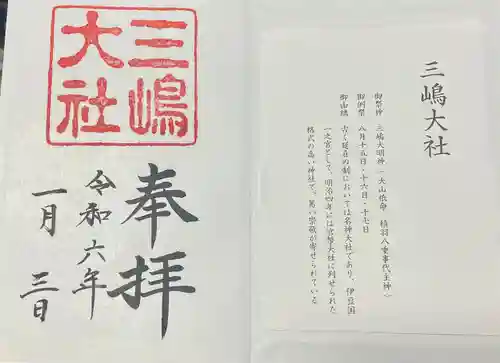 三嶋大社
御祭神 三嶋大明神(大山祇命 積羽八重事代主神)
御例祭 八月十五日・十六日・十七日
御由緒 古く延喜の制においては名神大社であり、伊豆国
一之宮として、明治四年には官幣大社に列せられた
格式の高い神社で、篤い崇敬が寄せられている
三嶋
大社
奉拝
令和六年
一月 三日